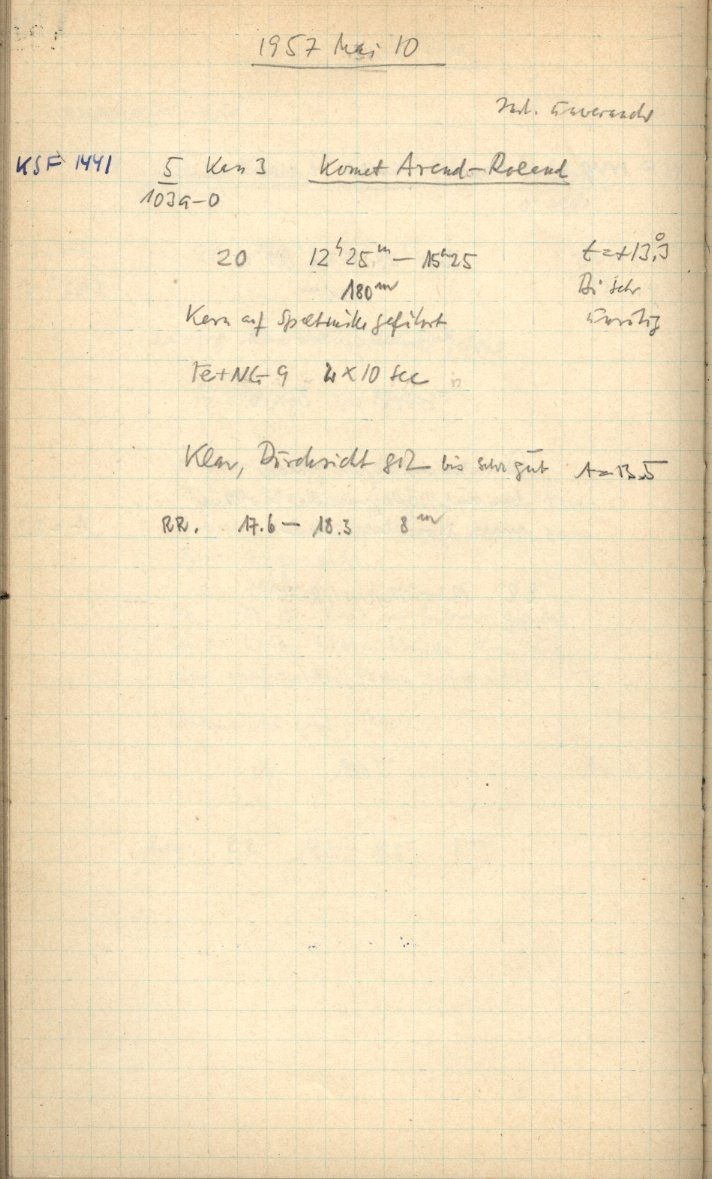 1957 Mai 10
KSF 1441 5 Kas 3 Komet Arend-Roland
103a-O
20 12ʰ25ᵐ — 15ʰ25 t=+13,°3
180ᵐ Bi sehr
Kern auf Spaltmitte geführt unruhig
Fe+NG 9 4×10 sec
Klar, Durchsicht gut bis sehr gut
RR. 17.6 — 18.3 8ᵐ